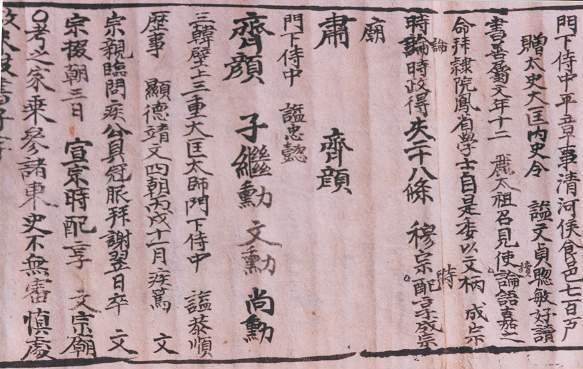 門下侍中平章事清河侯食邑七百戶
贈太史大匡內史令 謚文貞聰敏好讀
書善屬文年十二 麗太祖召見使讀論語嘉之
命拜隸院鳳省學士自是委以文柄 成宗
時論時政得失二十八條 穆宗時配享成宗
廟
肅 齊顔
門下侍中 謚忠懿
齊顔 子繼勳 文勳 尚勳
三韓壁上三重大匡太師門下侍中 謚恭順
歷事 顯德靖文四朝丙戌十一月疾篤 文
宗親臨問疾公具冠服拜謝翌日卒 文
宗掇朝三日 宣宗時配享 文宗廟
〇考之家乘參諸東史不無審慎處